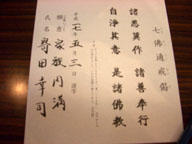 七佛通戒偈
諸悪莫作 諸善奉行
自淨其意 是諸佛教
平成 年五月三日
願意 家族円満
氏名 田幸司